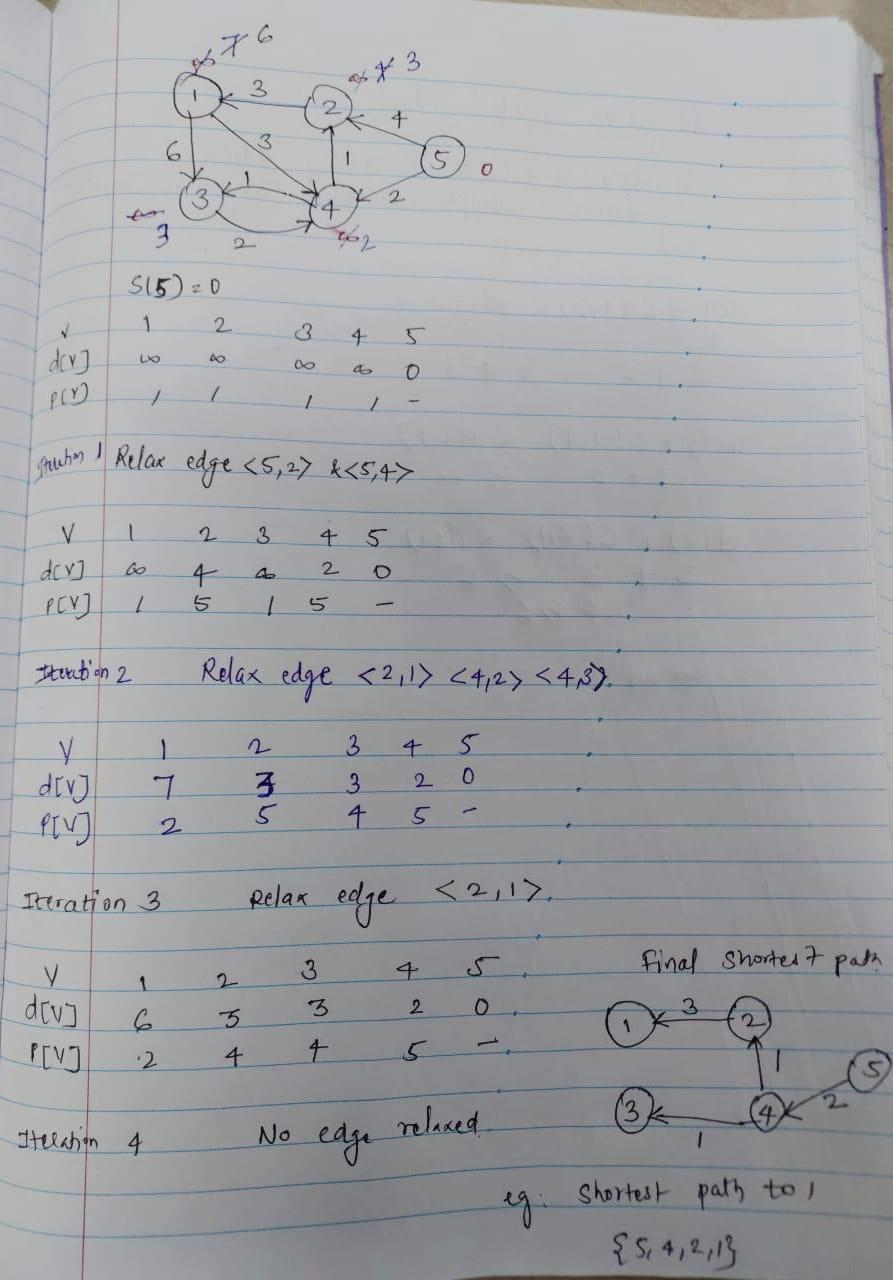 ∞ 7 6
∞ 4 3
1 3 2 4
6 3 1 5 0
3 1 4 2
∞ 3 2 ∞ 2
S(5) = 0
V 1 2 3 4 5
d[V] ∞ ∞ ∞ ∞ 0
P(V) / / / / -
1 Relax edge <5,2> & <5,4>
V 1 2 3 4 5
d[V] ∞ 4 ∞ 2 0
P[V] / 5 / 5 -
Iteration 2 Relax edge <2,1> <4,2> <4,3>.
V 1 2 3 4 5
d[V] 7 3 3 2 0
P[V] 2 5 4 5 -
Iteration 3 Relax edge <2,1>.
V 1 2 3 4 5
d[V] 6 3 3 2 0
P[V] 2 4 4 5 -
Iteration 4 No edge relaxed
Final Shortest path
1 3 2
1 5
3 1 4 2
eg: Shortest path to 1
{5,4,2,1}